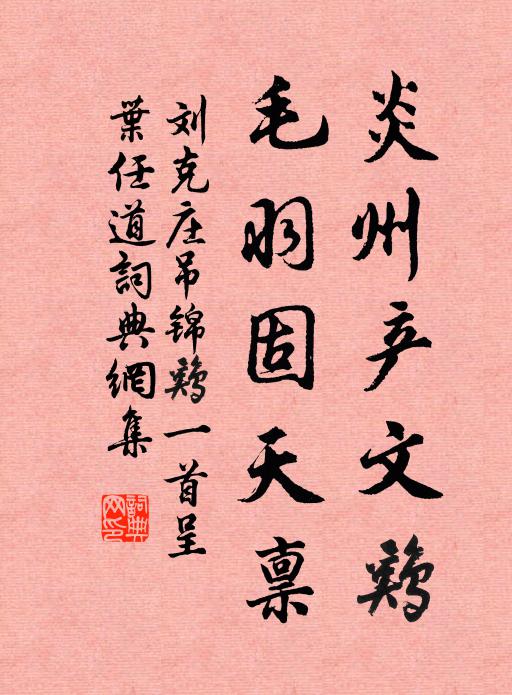 炎州产文鸡
毛羽固天禀
刘克庄吊锦鸡一首呈
葉任道詞典網集
詞典
网印